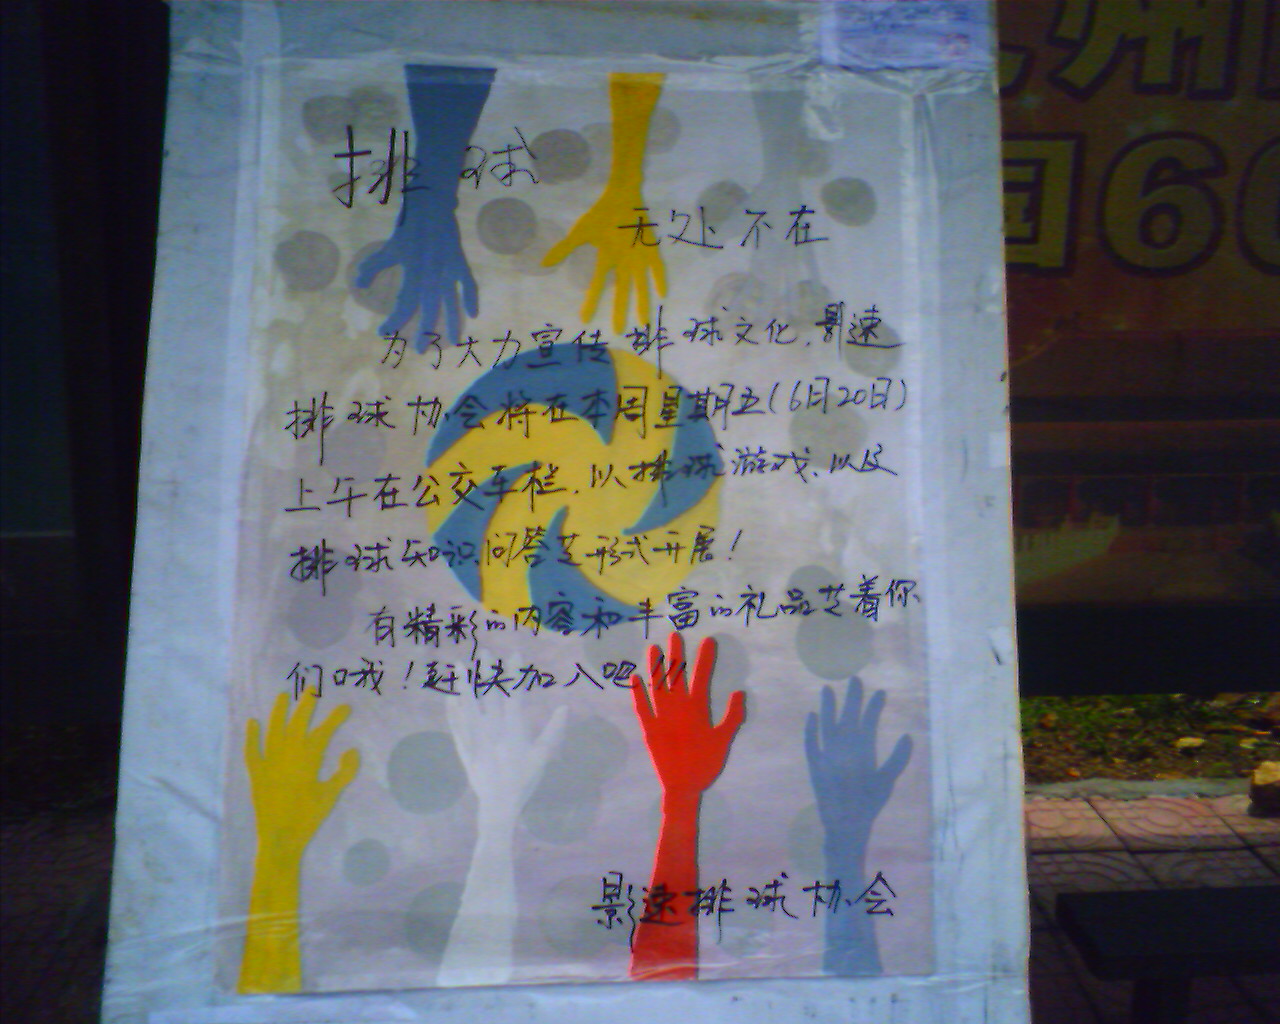 排球
无处不在
为了大力宣传排球文化,影速
排球协会将在本周星期五(6月20日)
上午在公交车栏,以排球游戏,以及
排球知识问答等形式开展!
有精彩的内容和丰富的礼品等着你
们哦!赶快加入吧!!!
影速排球协会
州
国60